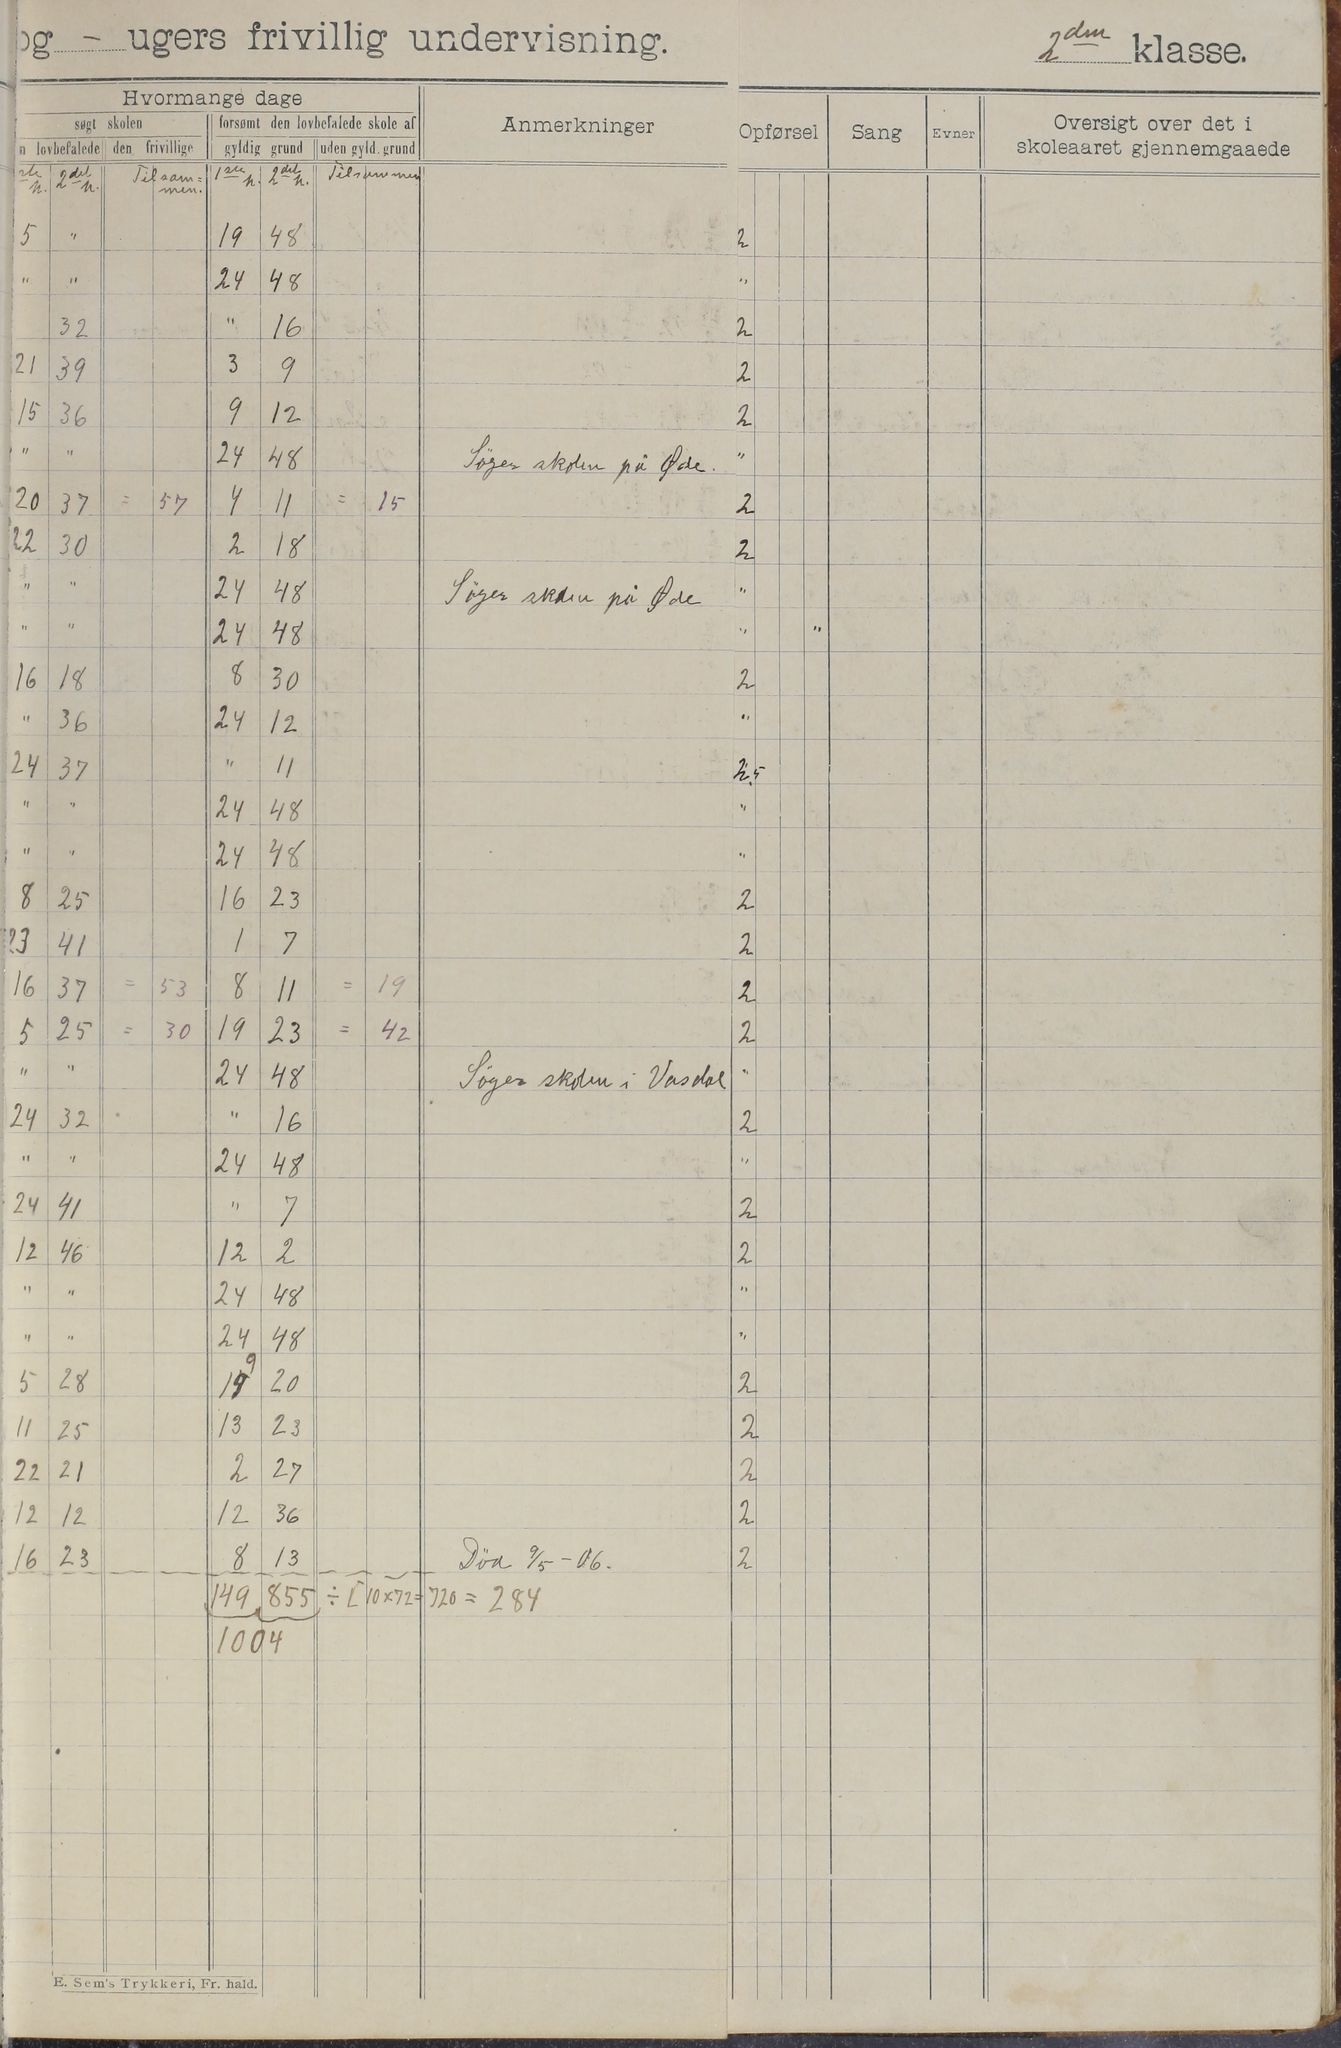 og - ugers frivillig undervisning. 2den klasse.
Hvormange dage
søgt skolen forsømt den lovbefalede skole af Anmerkninger Opførsel Sang Evner Oversigt over det i
n lovbefalede den frivillige gyldig grund uden gyld. grund skoleaaret gjennemgaaede
h. 2det h. Tilsam=men. 1ste h. 2det h. Tilsammen
5 " 19 48 2
" " 24 48 "
32 " 16 2
21 39 3 9 2
15 36 9 12 2
" " 24 48 Søger skolen på Øde. "
20 37 = 57 4 11 = 15 2
22 30 2 18 2
" " 24 48 Søger skolen på Øde "
" " 24 48 " "
16 18 8 30 2
" 36 24 12 "
24 37 " 11 2,5
" " 24 48 "
" " 24 48 "
8 25 16 23 2
23 41 1 7 2
16 37 = 53 8 11 = 19 2
5 25 = 30 19 23 = 42 2
" " 24 48 Søger skolen i Vasdal "
24 32 " 16 2
" " 24 48 "
24 41 " 7 2
12 46 12 2 2
" " 24 48 "
" " 24 48 "
5 28 19 20 2
11 25 13 23 2
22 21 2 27 2
12 12 12 36 2
16 23 8 13 Död 9/5 - 06. 2
149 855 ÷ [10×72= 720 = 284
1004
E. Sem's Trykkeri, Fr. hald.